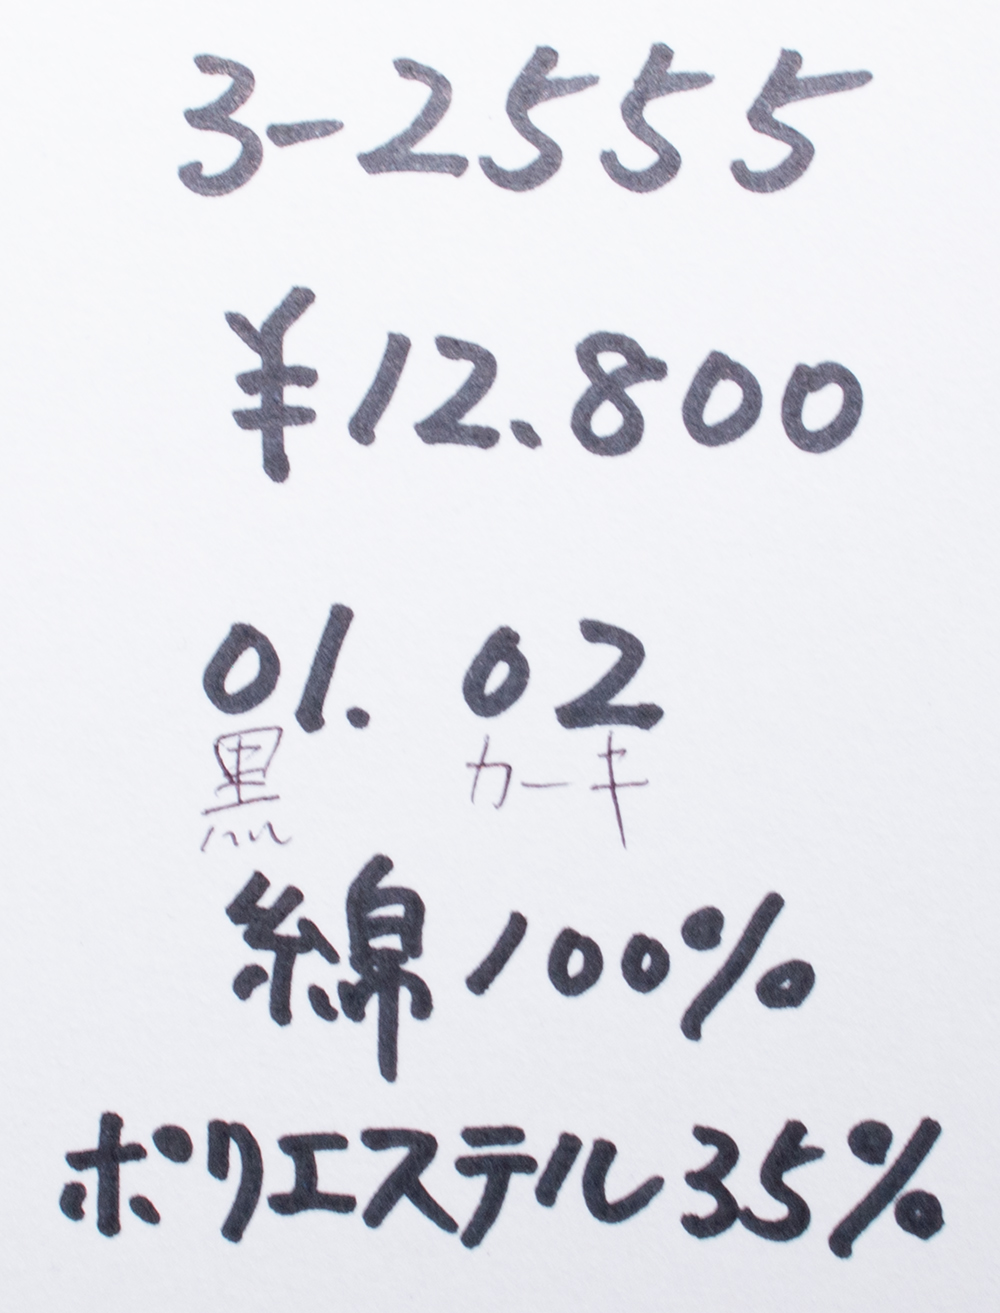 3-2555
¥12.800
01. 02
黒 カーキ
綿100%
ポリエステル35%